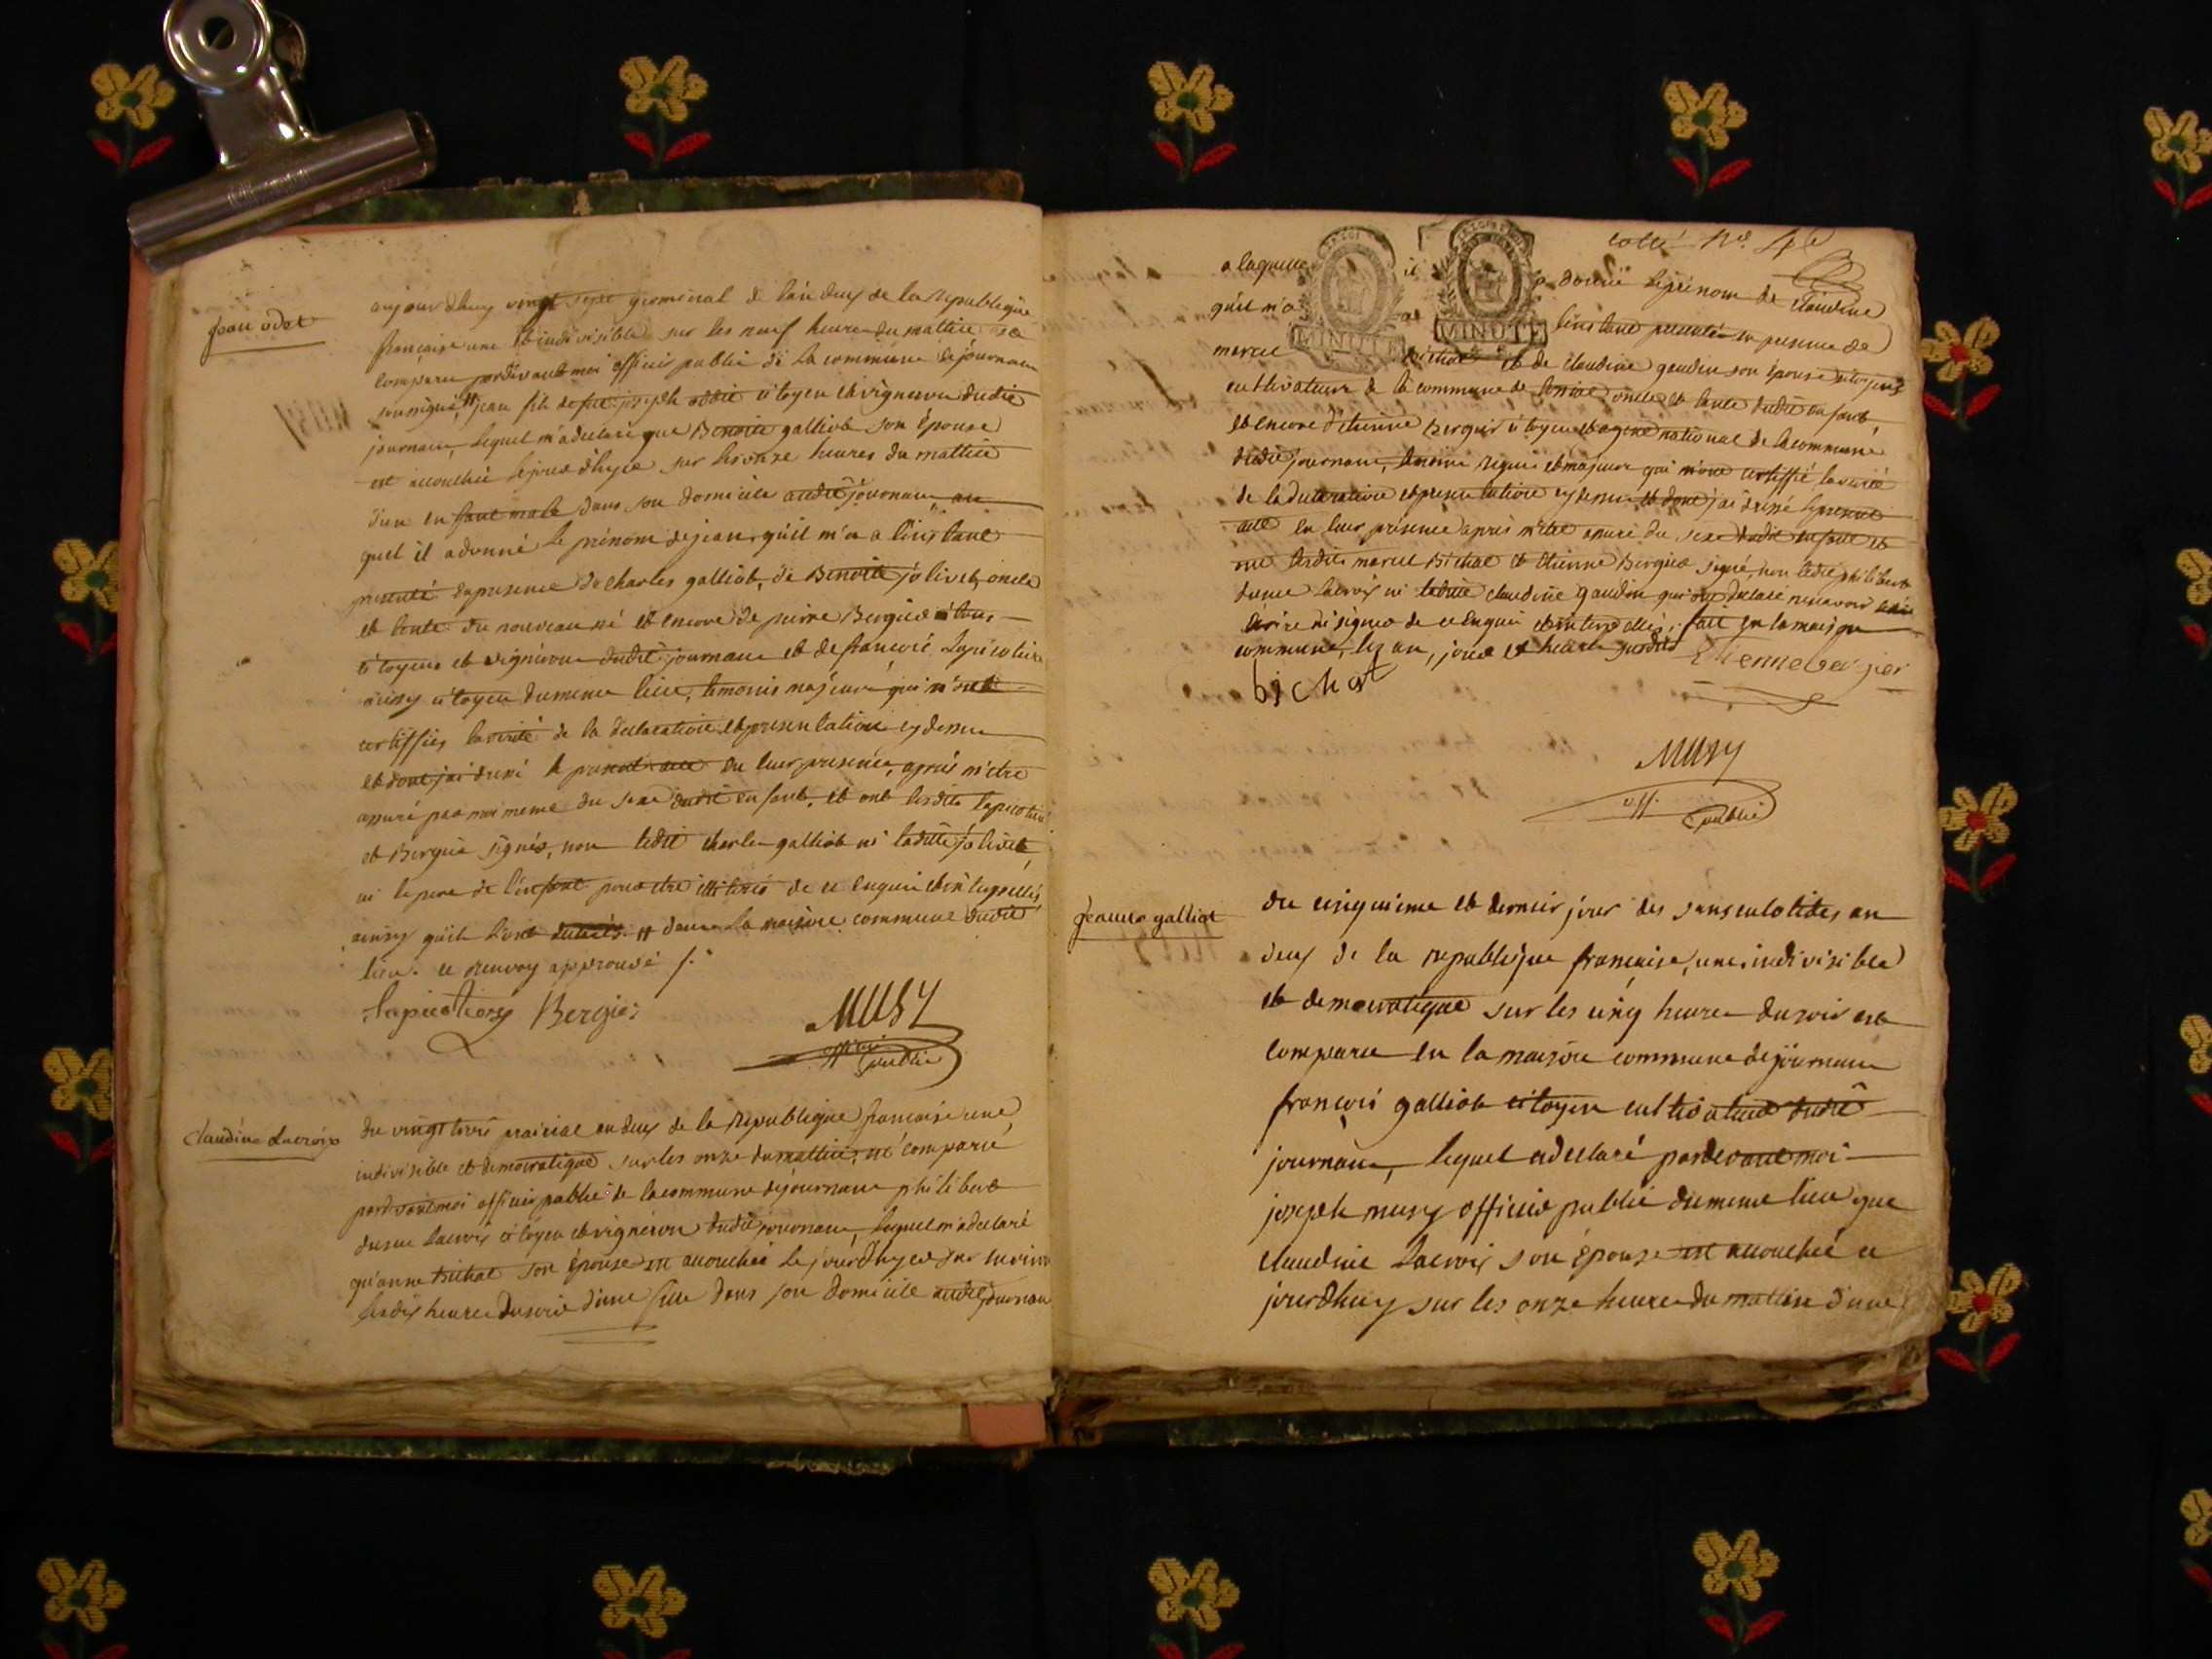 Jean odet
aujourdhuy vingt sept germinal de l'an deux de la Republique
francaise une et indivisible sur les neuf heures du mattin est
comparu pardevant moi officier public de la commune de journau
soussigné, jean fils de feu joseph oddet citoyen et vigneron dudit
journau, lequel m'a declaré que Benoite galliot son épouse
est accouchée le jour d'hyer sur les onze heures du mattin
d'un enfant male dans son domicile audit journau au
quel il a donné le prénom de jean, qu'il m'a a l'instant
presenté en presence de charles galliot, de Benoite jolivet, oncle
et tante du nouveau né et encore de pierre Bergier tous
citoyens et vignerons dudit journau et de francois Lapicotiere
aussy citoyen du meme lieu, temoins majeurs qui m'ont
certiffiés la verité de la declaration et presentation cy dessus
et dont j'ai dressé le present acte en leur presence, après m'etre
assuré par moi meme du sexe dudit enfant, et ont lesdits lapicotiere
et Bergier signés, non ledit charles galliot ni ladite jolivet,
ni le pere de l'enfant pour etre illitérés de ce enquis et interpellés,
ainsy qu'ils l'ont dans la maison commune dudit
lieu. ce renvoy approuvé /.
Lapicotiere Bergier
MUSY
officier public
Claudine Lacroix
du vingt trois prairial an deux de la Republique francaise une,
indivisible et democratique sur les onze du mattin, est comparu
pardevant moi officier public de la commune de journau philibert
dumas Lacroix citoyen et vigneron dudit journau, lequel m'a declaré
qu'anne Bichat son épouse est accouchée le jour d'hyer sur
les dix heures du soir d'une fille dans son domicile audit journau
cotté Nos. 4e
a laquelle il a donné le prénom de Claudine
qu'il m'a a l'instant presenté en presence de
marcel Bichat et de Claudine gaudin son épouse citoyens
cultivateurs de la commune de oncle et tante dudit enfant,
et encore d'étienne Bergier citoyen et agent national de la commune
dudit journau, temoins requis et majeurs qui m'ont certiffié la verité
de la declaration et presentation cy dessus et dont j'ai dressé le present
acte en leur presence après m'etre assuré du sexe dudit enfant et
ont lesdits marcel Bichat et étienne Bergier signé, non ledit philibert
dumas lacroix ni ladite claudine gaudin qui ont declaré ne savoir
écrire ni signer de ce enquis et interpellés, fait en la maison
commune, les an, jour et heure susdits
Etienne bergier
bichat
MUSY
off. public
Jeanne galliot
du cinquieme et dernier jour des sansculotides an
deux de la republique francaise, une indivisible
et democratique sur les cinq heures du soir est
comparu en la maison commune de journau
francois galliot citoyen cultivateur dudit
journau, lequel a declaré pardevant moi
joseph musy officier public du meme lieu que
claudine Lacroix son épouse est accouchée ce
jourdhuy sur les onze heures du mattin d'une